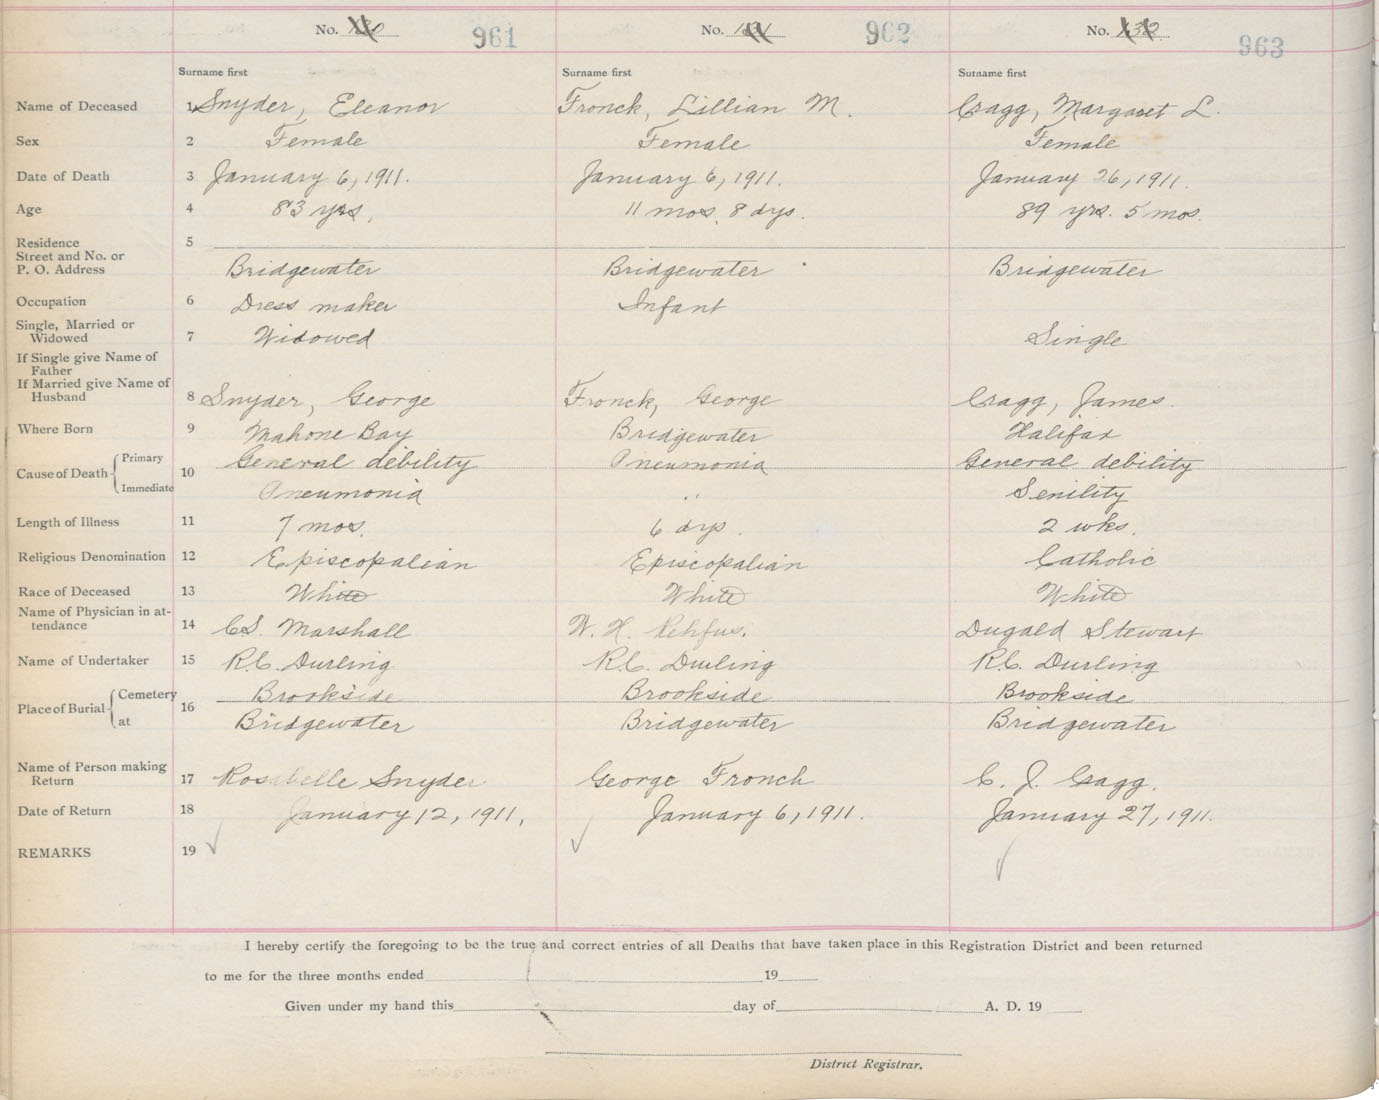 No. 130 961 No. 131 962 No. 132 963
Surname first Surname first Surname first
Name of Deceased 1 Snyder, Eleanor Fronck, Lillian M. Cragg, Margaret L.
Sex 2 Female Female Female
Date of Death 3 January 6, 1911. January 6, 1911. January 26, 1911.
Age 4 83 yrs. 11 mos. 8 dys. 89 yrs. 5 mos.
Residence 5
Street and No. or
P. O. Address Bridgewater Bridgewater Bridgewater
Occupation 6 Dress maker Infant
Single, Married or
Widowed 7 Widowed Single
If Single give Name of
Father
If Married give Name of
Husband 8 Snyder, George Fronck, George Cragg, James
Where Born 9 Mahone Bay Bridgewater Halifax
Cause of Death Primary 10 General debility Pneumonia General debility
Immediate Pneumonia " Senility
Length of Illness 11 7 mos. 6 dys. 2 wks.
Religious Denomination 12 Episcopalian Episcopalian Catholic
Race of Deceased 13 White White White
Name of Physician in at-
tendance 14 C.S. Marshall W. H. Rehfus. Dugald Stewart
Name of Undertaker 15 R.C. Durling R.C. Durling R.C. Durling
Place of Burial Cemetery 16 Brookside Brookside Brookside
at Bridgewater Bridgewater Bridgewater
Name of Person making
Return 17 Rosabelle Snyder George Fronch C. J. Cragg.
Date of Return 18 January 12, 1911. January 6, 1911. January 27, 1911.
REMARKS 19
I hereby certify the foregoing to be the true and correct entries of all Deaths that have taken place in this Registration District and been returned
to me for the three months ended 19
Given under my hand this day of A. D. 19
District Registrar.